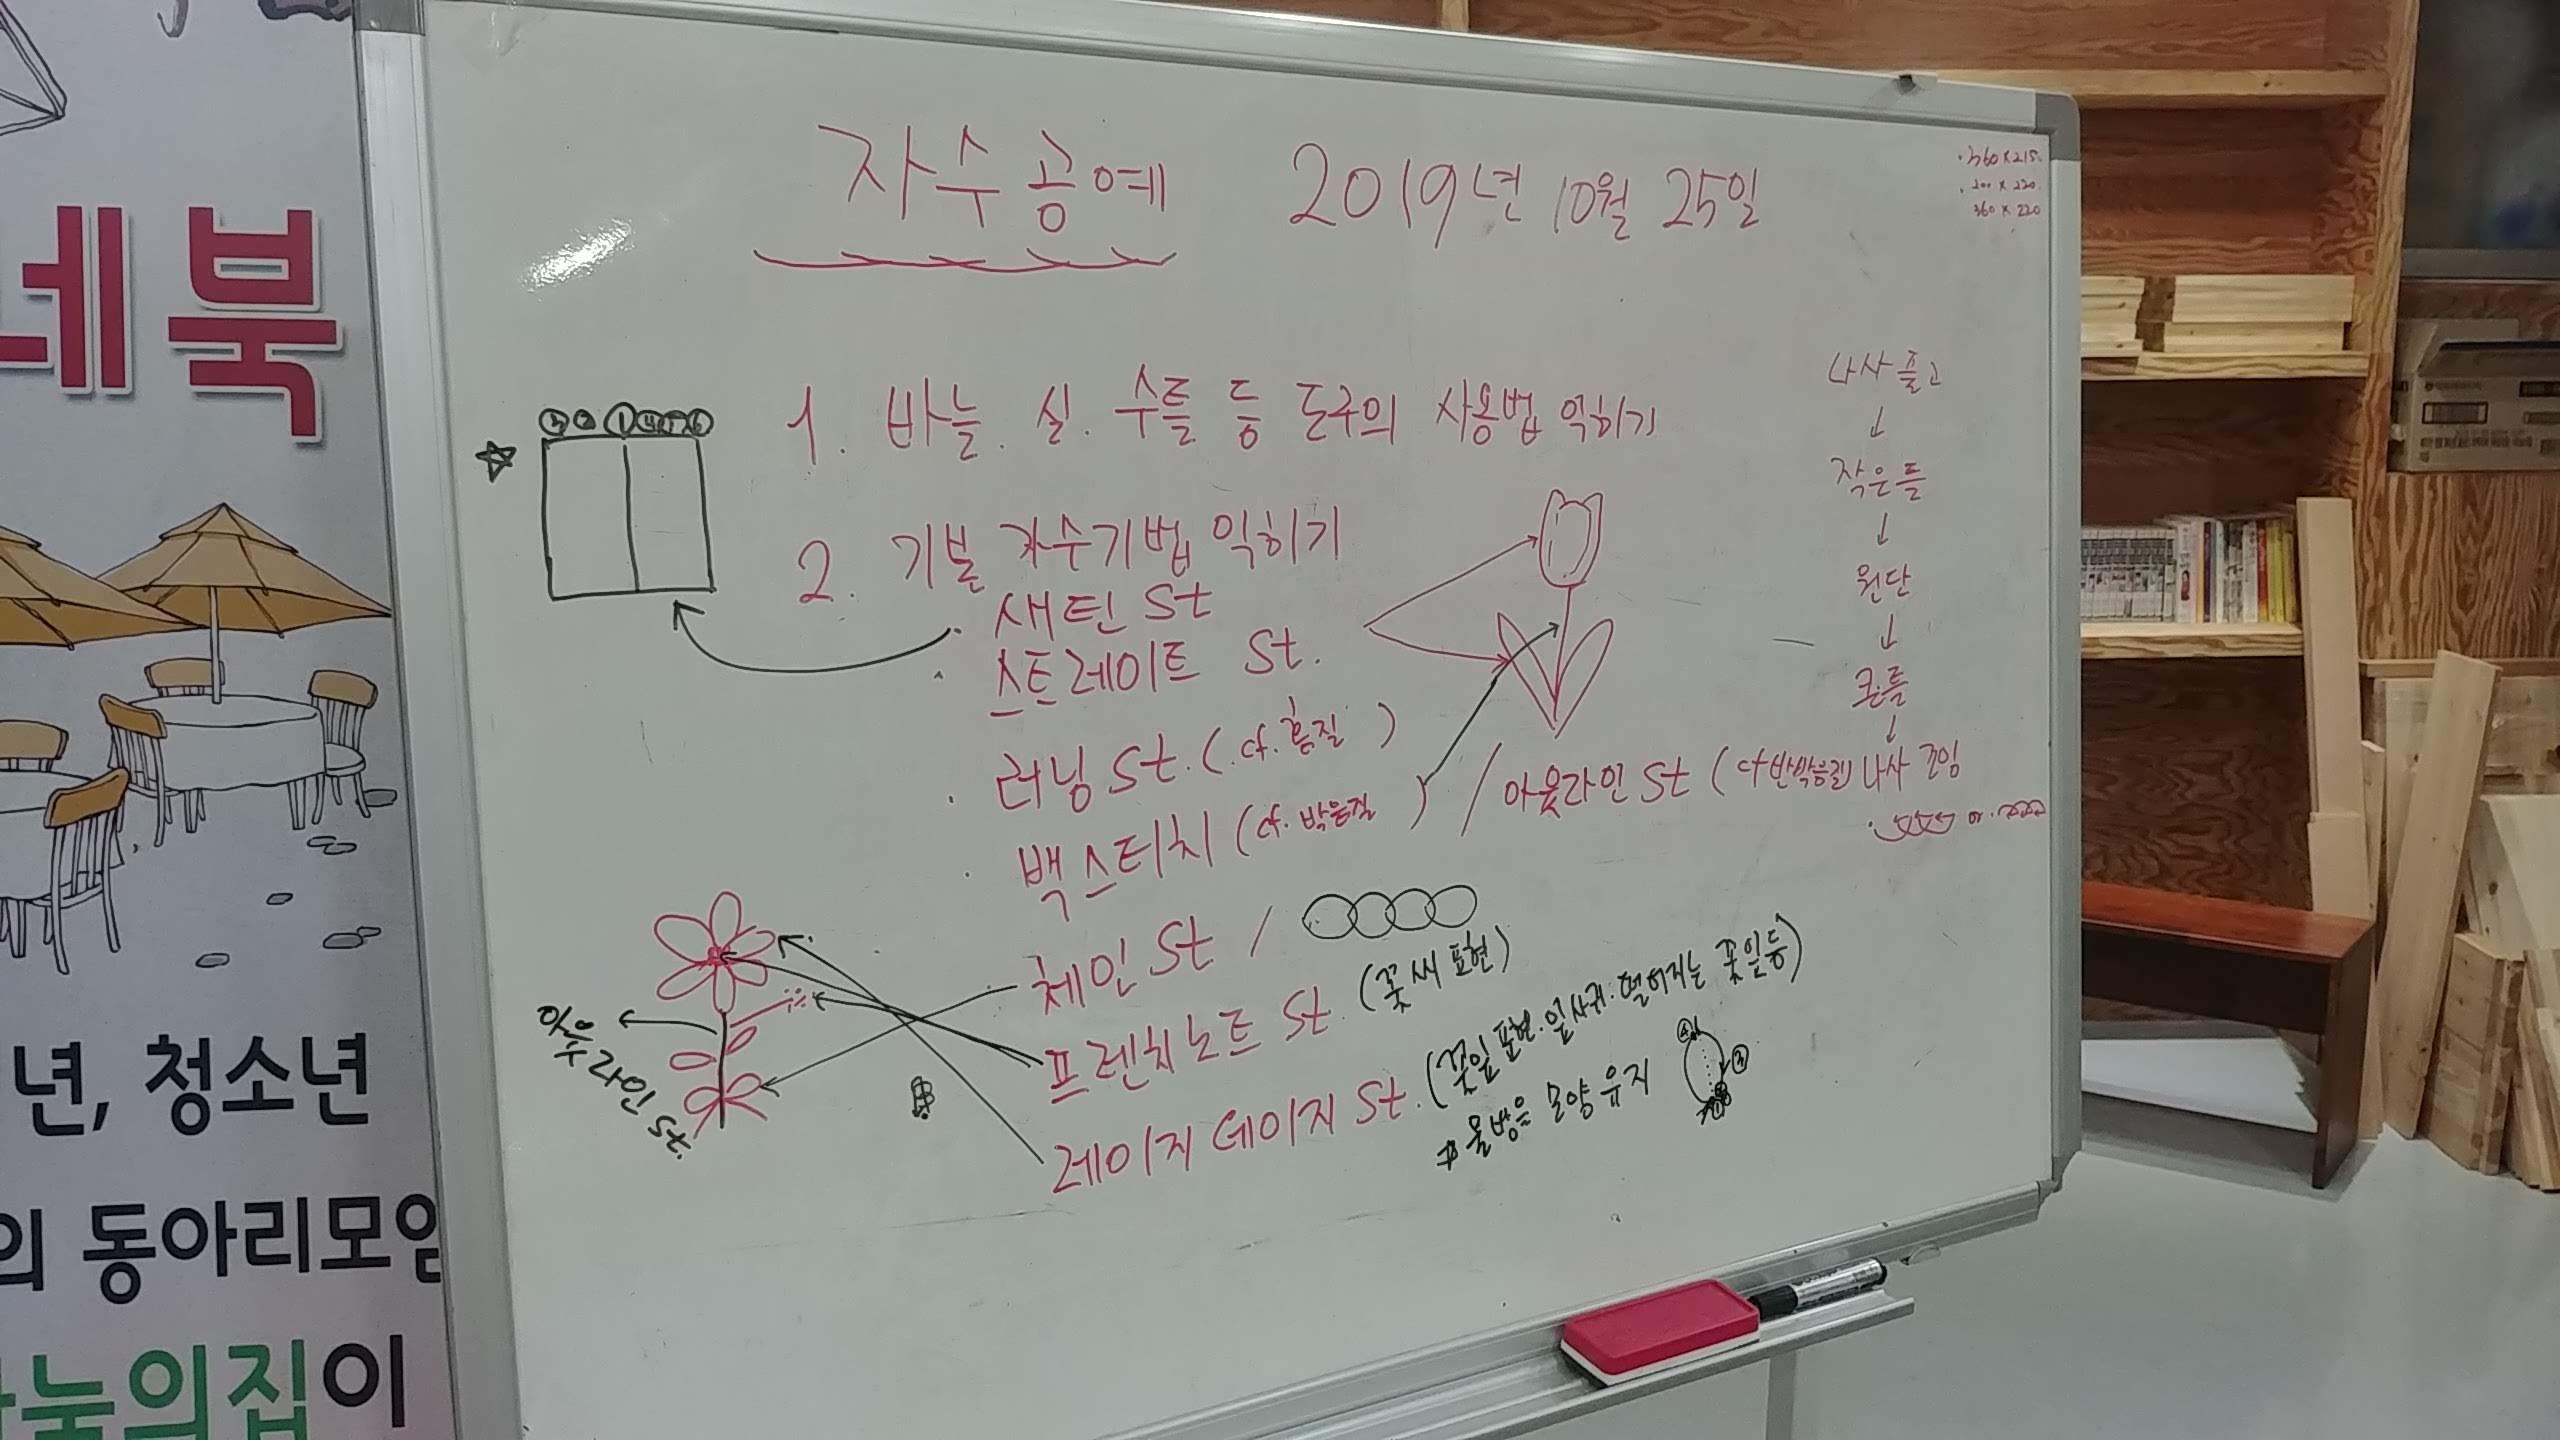 네북
년, 청소년
의 동아리모임
눔의집이
자수공예 2019년 10월 25일
360×215
200×220
360×220
1. 바늘. 실. 수틀 등 도구의 사용법 익히기
③②①④⑤⑥
2. 기본 자수기법 익히기
· 새틴 St
· 스트레이트 St.
· 러닝 St. (cf. 홈질)
· 백스티치 (cf. 박음질) / 아웃라인 St (cf 반박음질)
체인 St /
프렌치노트 St. (꽃씨 표현)
레이지데이지 St. (꽃잎표현. 잎사귀. 떨어지는 꽃잎 등)
물방울 모양 유지
④
③
아웃라인 St.
나사 풀고
↓
작은틀
↓
원단
↓
큰틀
↓
나사 조임
or